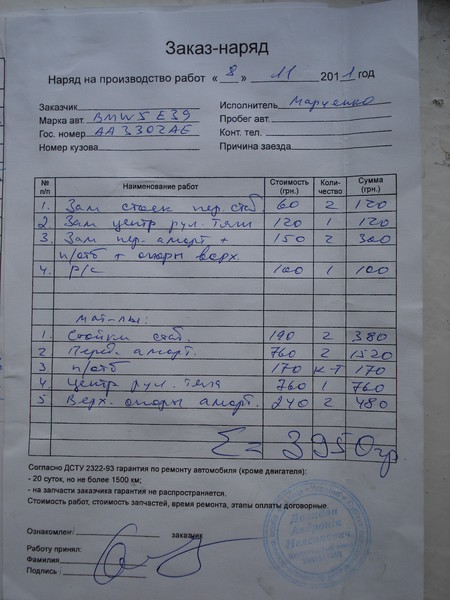 Заказ-наряд
Наряд на производство работ « 8 » 11 2011 год
Заказчик
Марка авт. BMW 5 E39
Гос. номер AA 3302 AE
Номер кузова
Исполнитель Марченко
Пробег авт.
Конт. тел.
Причина заезда
№ п/п Наименование работ Стоимость (грн.) Коли-чество Сумма (грн.)
1. Зам стоек пер. стаб. 60 2 120
2 Зам центр рул. тяги 120 1 120
3. Зам пер. аморт + 150 2 300
п/отб + опоры верх.
4. Р/С 100 1 100
мат-лы:
1. Стойки стаб. 190 2 380
2 Перед. аморт. 760 2 1520
3 п/отб 170 к-т 170
4 Центр рул. тяга 760 1 760
5 Верх. опоры аморт. 240 2 480
Σ = 3950гр.
Согласно ДСТУ 2322-93 гарантия по ремонту автомобиля (кроме двигателя):
- 20 суток, но не более 1500 км;
- на запчасти заказчика гарантия не распространяется.
Стоимость работ, стоимость запчастей, время ремонта, этапы оплаты договорные.
Ознакомлен: заказчик
Работу принял:
Фамилия
Подпись